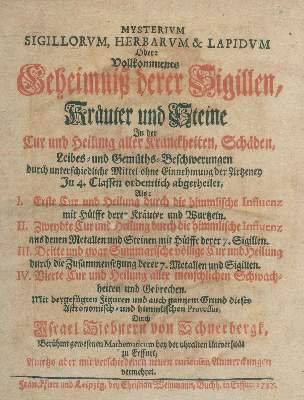 MYSTERIVM
SIGILLORVM, HERBARVM & LAPIDVM
Oder:
Vollkommenes
Geheimniß derer Sigillen,
Kräuter und Steine
In der
Cur und Heilung aller Kranckheiten, Schäden,
Leibes- und Gemüths-Beschwerungen
durch unterschiedliche Mittel ohne Einnehmung der Artzeney
In 4. Classen ordentlich abgetheilet,
Als:
I. Erste Cur und Heilung durch die himmlische Influenz
mit Hülffe derer Kräuter und Wurtzeln.
II. Zweydte Cur und Heilung durch die himmlische Influentz
aus denen Metallen und Steinen mit Hülffe derer 7. Sigillen.
III. Dritte und zwar Summarische völlige Cur und Heilung
durch die Zusammensetzung derer 7. Metallen und Sigillen.
IV. Vierte Cur und Heilung aller menschlichen Schwach-
heiten und Gebrechen.
Mit beygefügten Figuren und auch gantzem Grund dieses
Astronomisch- und himmlischen Processus,
Durch
Israel Hiebnern von Schneebergk,
Berühmt gewesenen Mathematicum bey der uhralten Universität
zu Erffurt,
Anietzo aber mit verschiedenen neuen curieusen Anmerckungen
vermehret.
Franckfurt und Leipzig, bey Christian Weinmann, Buchh. in Erffurt